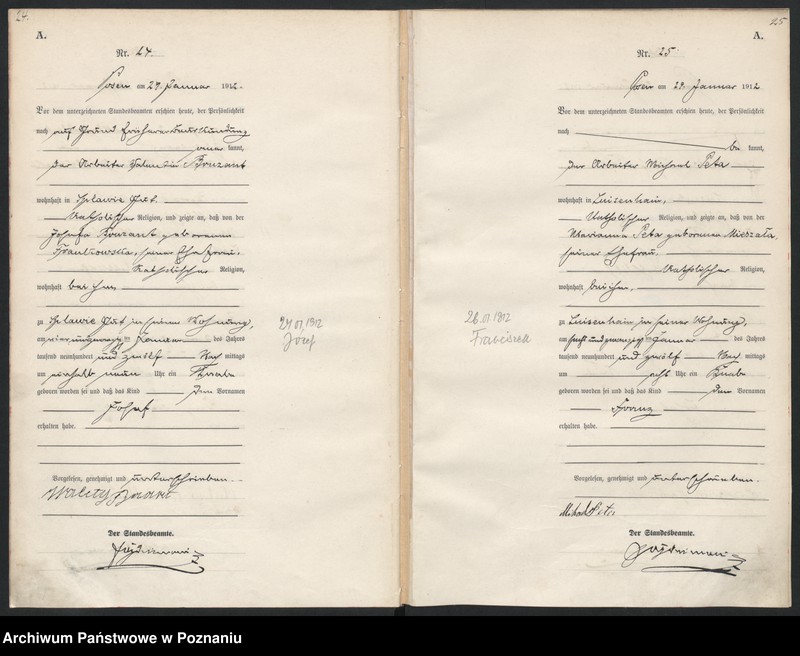 24.
A.
Nr. 24.
Posen am 27. Januar 1912.
Vor dem unterzeichneten Standesbeamten erschien heute, der Persönlichkeit
nach auf Grund
kannt,
der Arbeiter Valentin
wohnhaft in Gut.
Katholischer Religion, und zeigte an, daß von der
Josefa geborenen
seiner Ehefrau,
Katholischer Religion,
wohnhaft bei ihm,
zu Gut in seiner Wohnung,
am vierundzwanzigsten Januar des Jahres
tausend neunhundert und zwölf Nach mittags
um neun Uhr ein Knabe
geboren worden sei und daß das Kind den Vornamen
Josef
erhalten habe.
Vorgelesen, genehmigt und unterschrieben.
Der Standesbeamte.
24.01.1912
Józef
25
A.
Nr. 25
Posen am 29. Januar 1912
Vor dem unterzeichneten Standesbeamten erschien heute, der Persönlichkeit
nach
be kannt,
der Arbeiter Michael Peta
wohnhaft in Luisenhain,
Katholischer Religion, und zeigte an, daß von der
Marianna Peta geborenen Mieszała,
seiner Ehefrau,
Katholischer Religion,
wohnhaft bei ihm,
zu Luisenhain in seiner Wohnung,
am sechsundzwanzigsten Januar des Jahres
tausend neunhundert und zwölf Nach mittags
um acht Uhr ein Knabe
geboren worden sei und daß das Kind den Vornamen
Franz
erhalten habe.
Vorgelesen, genehmigt und unterschrieben.
Michael Peta
Der Standesbeamte.
26.01.1912
Franciszek
Archiwum Państwowe w Poznaniu